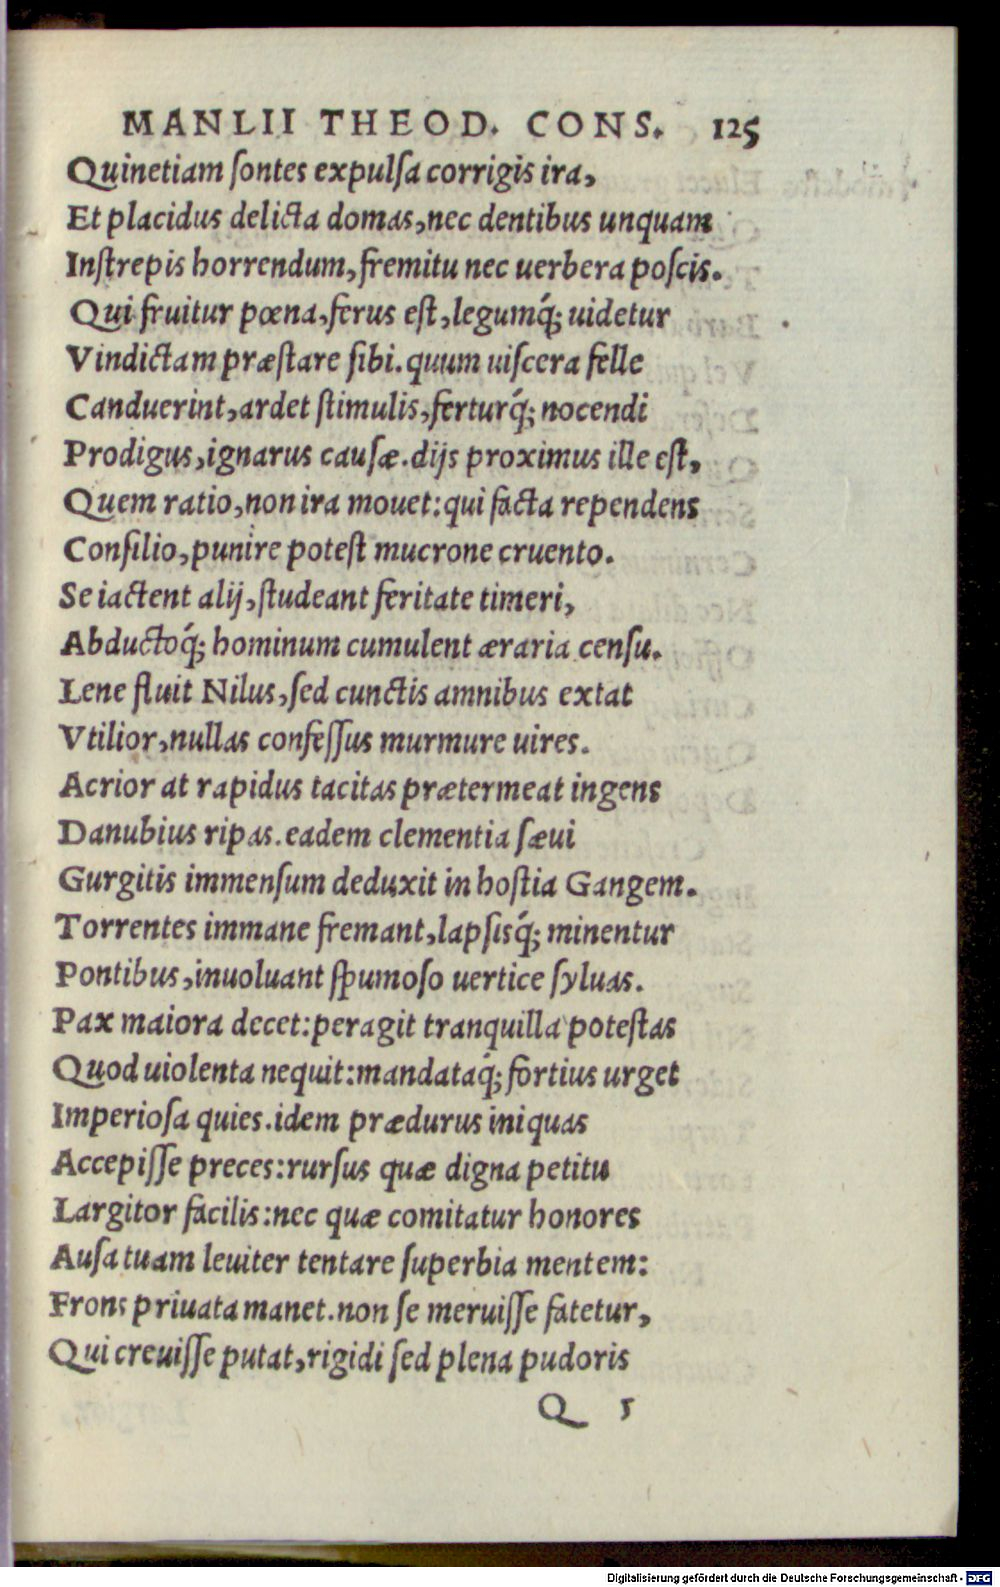 MANLII THEOD. CONS. 125
Quinetiam ſontes expulſa corrigis ira,
Et placidus delicta domas, nec dentibus unquam
Inſtrepis horrendum, fremitu nec uerbera poſcis.
Qui fruitur pœna, ferus eſt, legumq́; uidetur
Vindictam præſtare ſibi. quum uiſcera felle
Canduerint, ardet ſtimulis, ferturq́; nocendi
Prodigus, ignarus cauſæ. dijs proximus ille eſt,
Quem ratio, non ira mouet: qui facta rependens
Conſilio, punire poteſt mucrone cruento.
Se iactent alij, ſtudeant feritate timeri,
Abductoq́; hominum cumulent æraria cenſu.
Lene fluit Nilus, ſed cunctis amnibus extat
Vtilior, nullas confeſſus murmure uires.
Acrior at rapidus tacitas prætermeat ingens
Danubius ripas. eadem clementia ſæui
Gurgitis immenſum deduxit in hoſtia Gangem.
Torrentes immane fremant, lapſisq́; minentur
Pontibus, inuoluant ſpumoſo uertice ſyluas.
Pax maiora decet: peragit tranquilla poteſtas
Quod uiolenta nequit: mandataq́; fortius urget
Imperioſa quies. idem prædurus iniquas
Accepiſſe preces: rurſus quæ digna petitu
Largitor facilis: nec quæ comitatur honores
Auſa tuam leuiter tentare ſuperbia mentem:
Frons priuata manet. non ſe meruiſſe fatetur,
Qui creuiſſe putat, rigidi ſed plena pudoris
Q 5
Digitalisierung gefördert durch die Deutsche Forschungsgemeinschaft - DFG